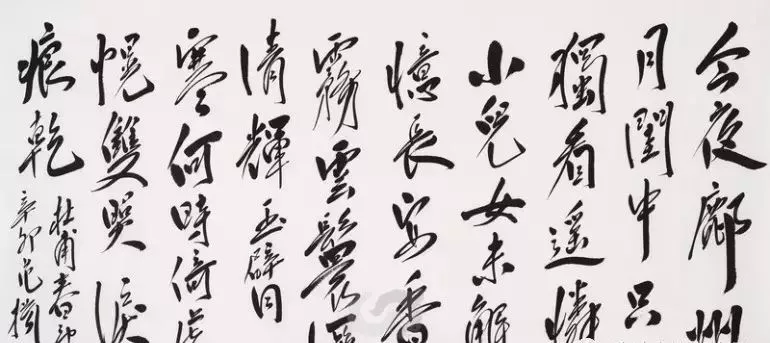 今夜鄜州
月閨中只
獨看遥憐
小兒女未解
憶長安香
霧雲鬟濕
清輝玉臂
寒何時倚虛
幌雙照淚
痕乾
杜甫春
辛卯